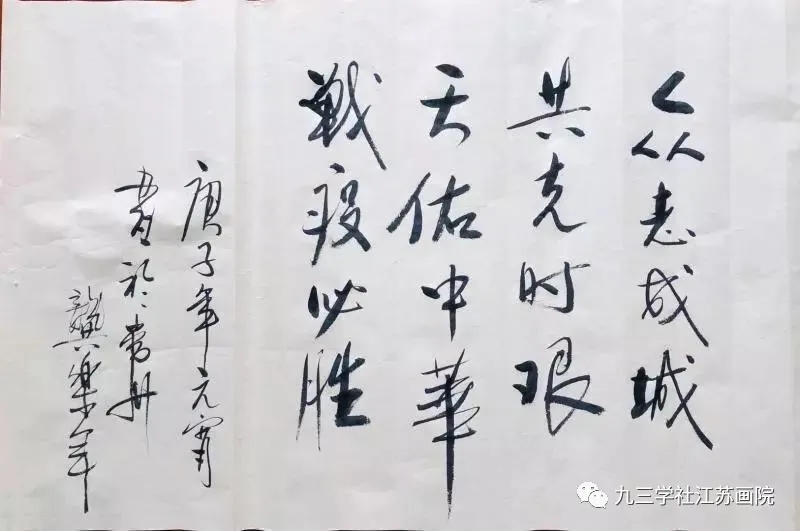 众志成城
共克时艰
天佑中華
戰疫必胜
庚子年元宵
書於常州
龔樂年
九三学社江苏画院